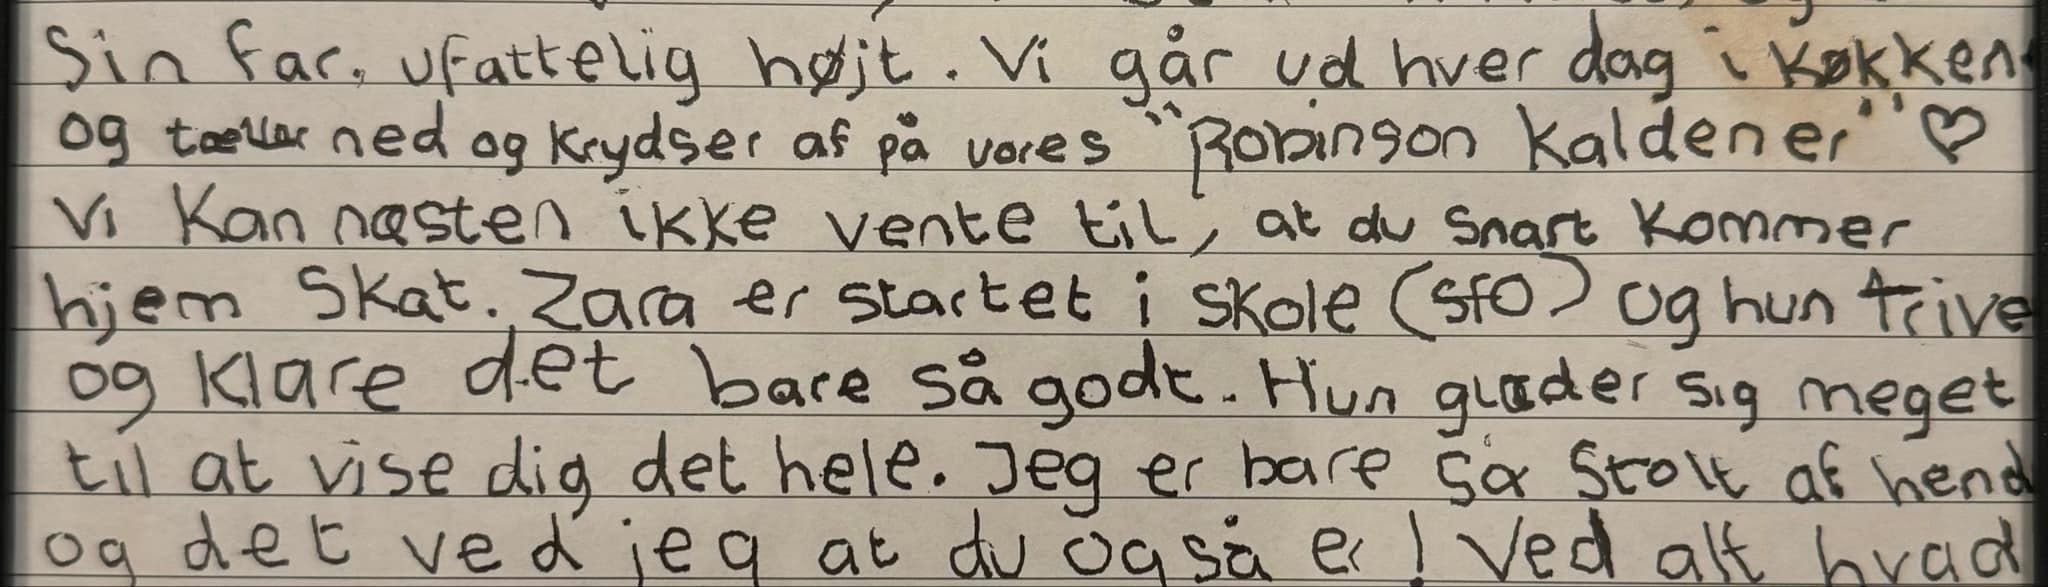 Sin far, ufattelig højt. Vi går ud hver dag i køkken
og tæller ned og krydser af på vores "Robinson kaldener" ♡
Vi kan næsten ikke vente til, at du snart kommer
hjem skat. Zara er startet i skole (sfo) og hun trive
og klare det bare så godt. Hun glæder sig meget
til at vise dig det hele. Jeg er bare så stolt af hend
og det ved jeg at du også er! Ved alt hvad